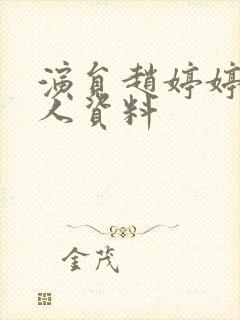 演員趙婷婷
人資料
金茂